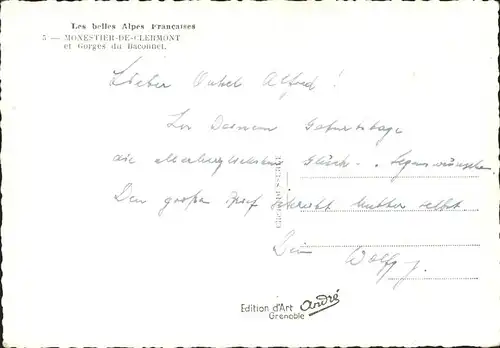 Les belles Alpes Françaises
5 — MONESTIER-DE-CLERMONT
et Gorges du Baconnet.
Lieber Onkel Alfred!
Zu Deinem Geburtstage
die allerherzlichsten Glück- u. Segenswünsche.
Den großen Brief schreibt Mutter selbst.
Dein Wolfg.
Edition d'Art André
Grenoble